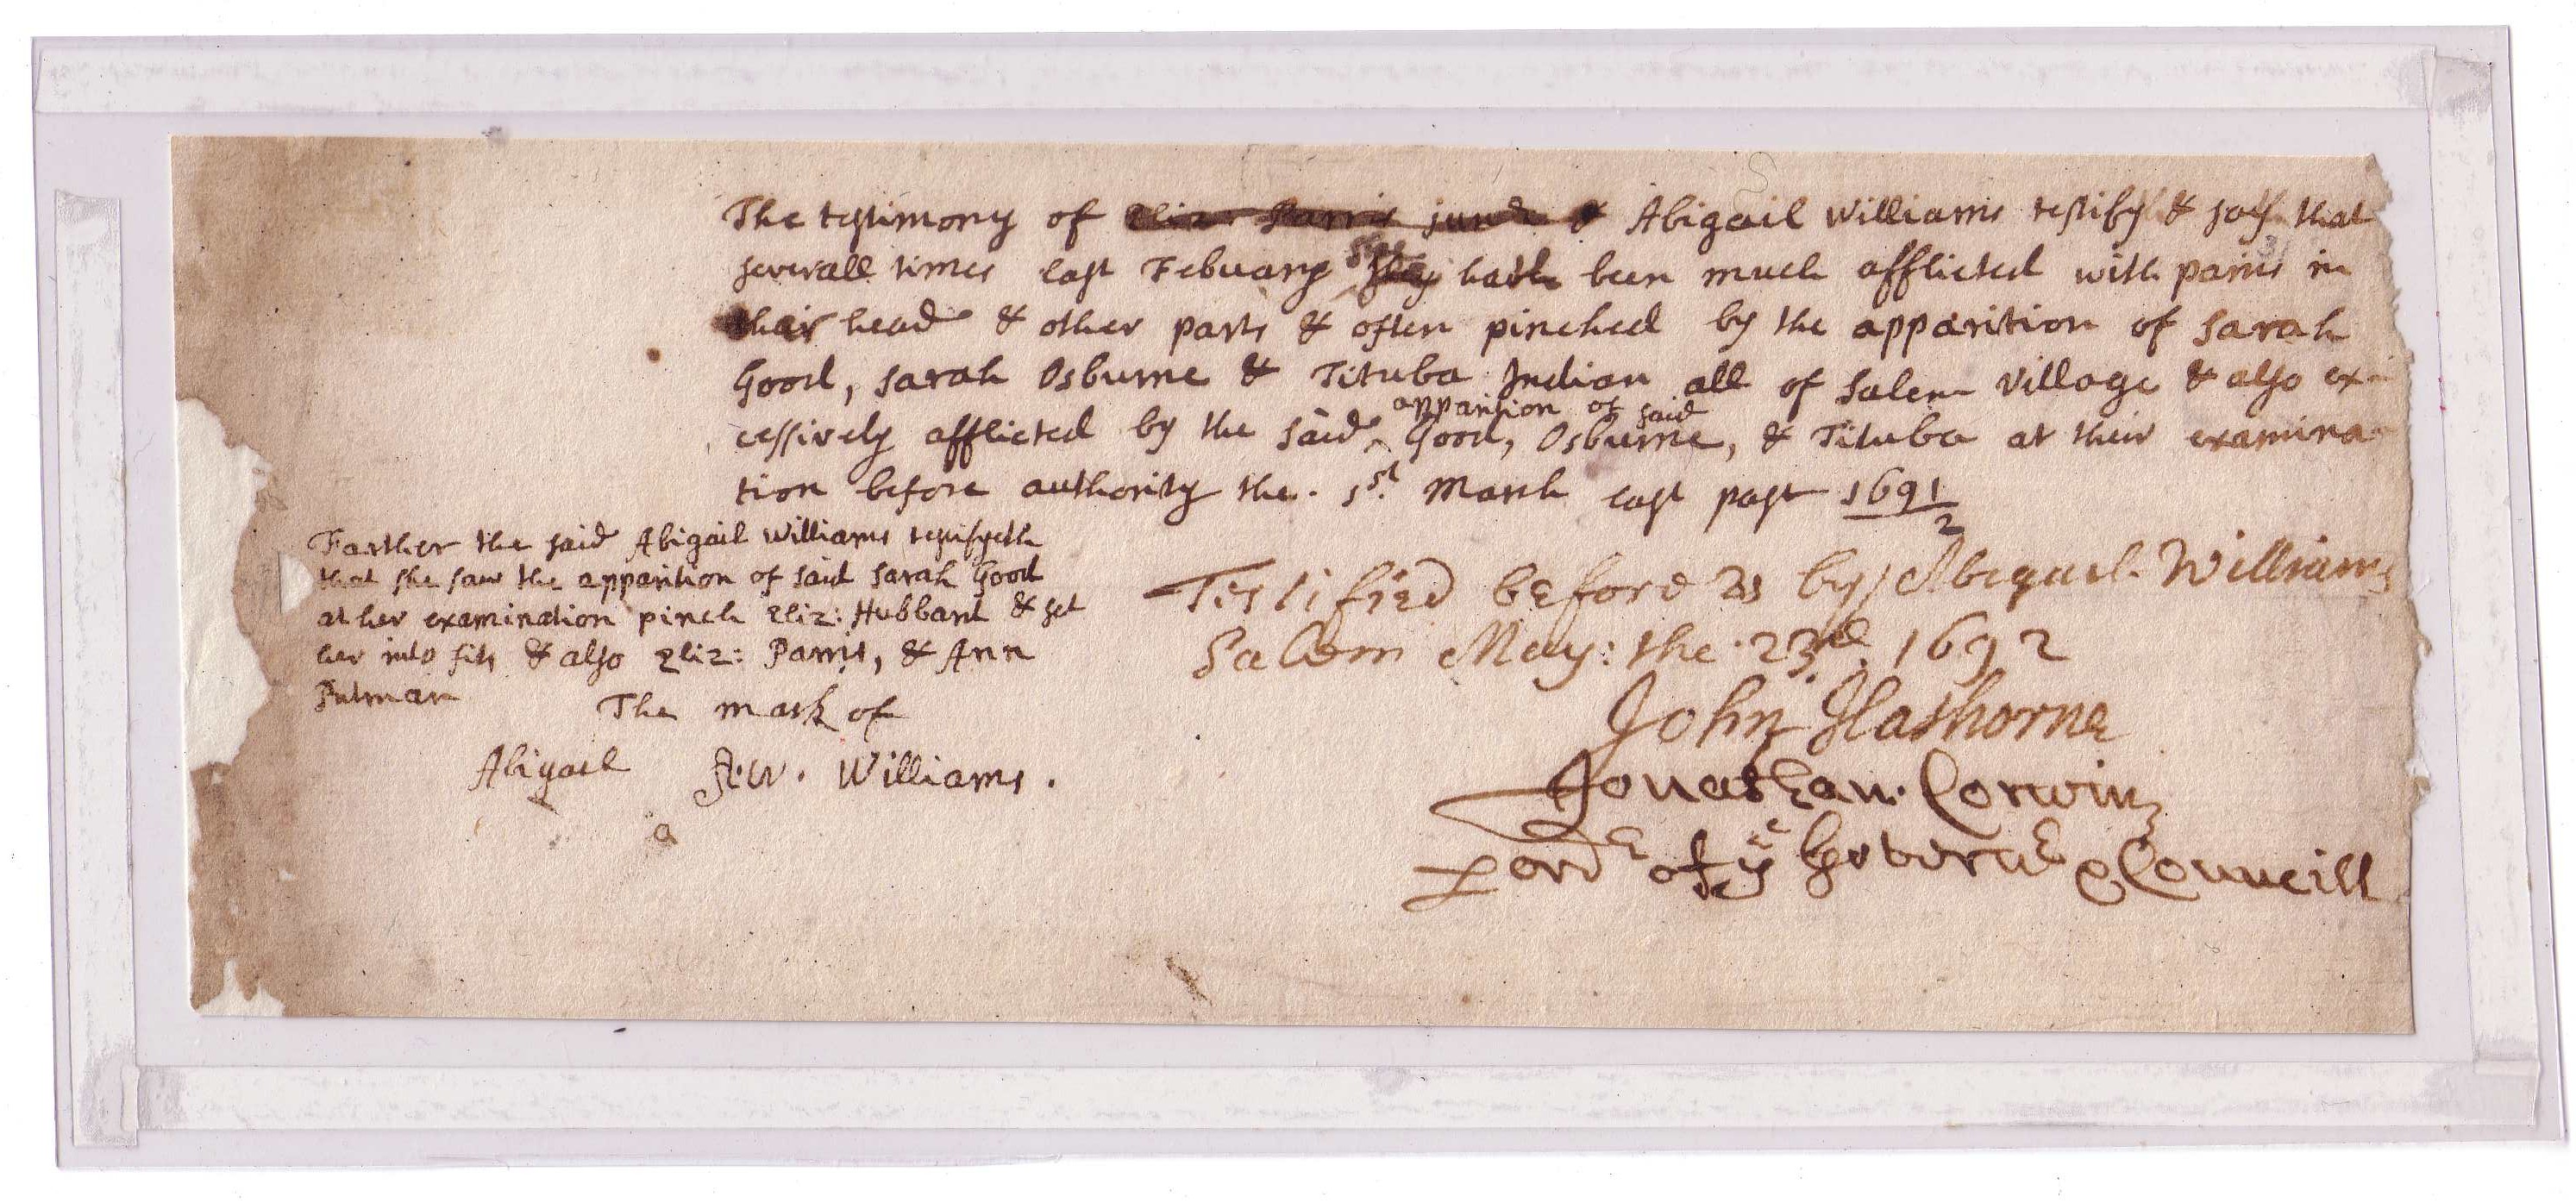 The testimony of Eliz: Parris junr & Abigail Williams testify & say that
severall times last Febuary she hath been much afflicted with pains in
their head & other parts & often pinched by the apparition of Sarah
Good, Sarah Osburne & Tituba Indian all of Salem Village & also ex-
apparition of said
cessively afflicted by the said Good, Osburne, & Tituba at their examina-
tion before authority the 1st. March last past 1691/2
Farther the said Abigail Williams testifyeth
that she saw the apparition of said Sarah Good
at her examination pinch Eliz: Hubbard & set
her into fits & also Eliz: Parris, & Ann
Putman
The mark of
Abigail A.W. Williams.
a
Testified before us by Abigail Williams
Salem May: the 23rd 1692
John Hathorne
Jonathan. Corwin
per ordr of ye Governr & Councill